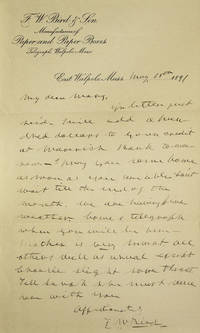 F. W. Bird & Son
Manufacturers of
Paper and Paper Boxes
Telegraph, Walpole, Mass
East Walpole, Mass. May 18th 1891
My dear Mary,
Your letter just
rec'd. I will add a hun-
dred dollars to your credit
at
now – I pray you come home
as soon as you are able. Don't
wait till the end of the
month. We are having fine
weather here & telegraph
when you will be here –
is very
others well as usual except
Charlie slight sore throat
Tell Sarah she must
with you
Affectionately
F. W. Bird